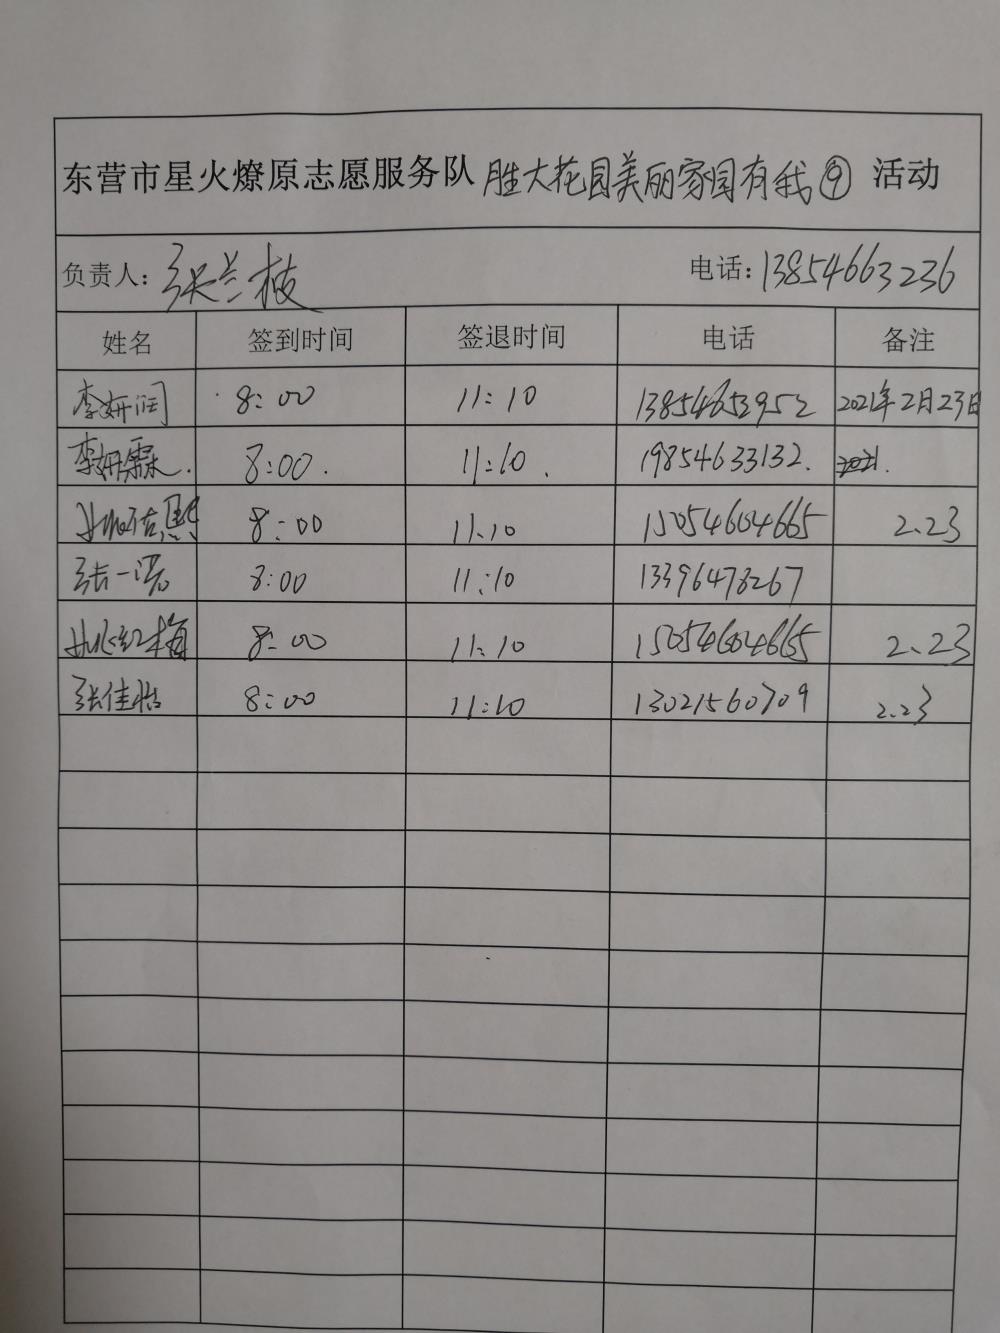 东营市星火燎原志愿服务队 胜大花园美丽家园有我⑨ 活动
负责人：张兰枝 电话：13854663236
姓名 签到时间 签退时间 电话 备注
李妍润 8:00 11:10 13854653952 2021年2月23日
李妍霖. 8:00. 11:10. 19854633132.
8:00 11:10 15054604665 2.23
张一诺 8:00 11:10 13396478267
姚红梅 8:00 11:10 15054604665 2.23
张佳怡 8:00 11:10 13021560709 2.23